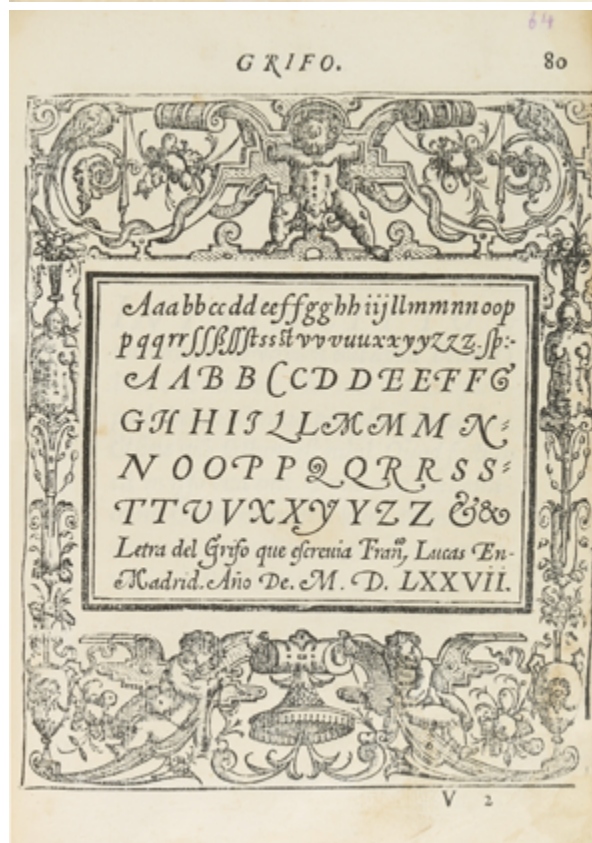 64
GRIFO.
80
Aaabbccddeeffgghhiijllmmnnoop
pqqrrſſſßſſſtssstvvvuuxxyyzzz.ſp:-
AABBCCDDEEFFG
GHHIIJLLMMMN-
NOOPPQQRRSS-
TTVVXXYYZZ&&
Letra del Grifo que eſcrevia Franco, Lucas En-
Madrid. Año De. M. D. LXXVII.
V 2